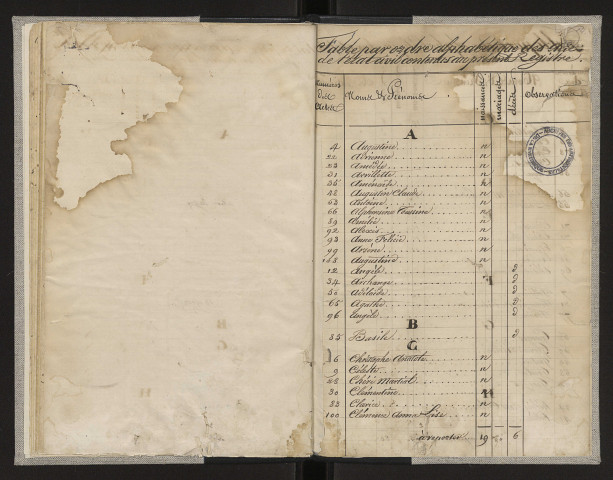 Table par ordre alphabétique des actes
de l'état civil contenus au présent Registre.
Numéros des Actes Noms & Prénoms naissances mariages décès Observations
A
4 Augustine n
22 Adrienne n
23 n
31 n
35 n
48 Augustin Claude n
63 Antoine n
66 Alphonsine n
89 Amélie n
92 Alexis n
93 Anne Félicie n
99 Arsène n
Augustine n
12 Angèle d
34 Archange d
56 Adélaïde d
65 Agathe d
96 Angèle d
B
85 Basile d
C
6 Christophe n
9 Céleste n
Chéri Martial n
30 Clémentine n
53 n
100 Clémence Anne Lise n
à reporter 19 6